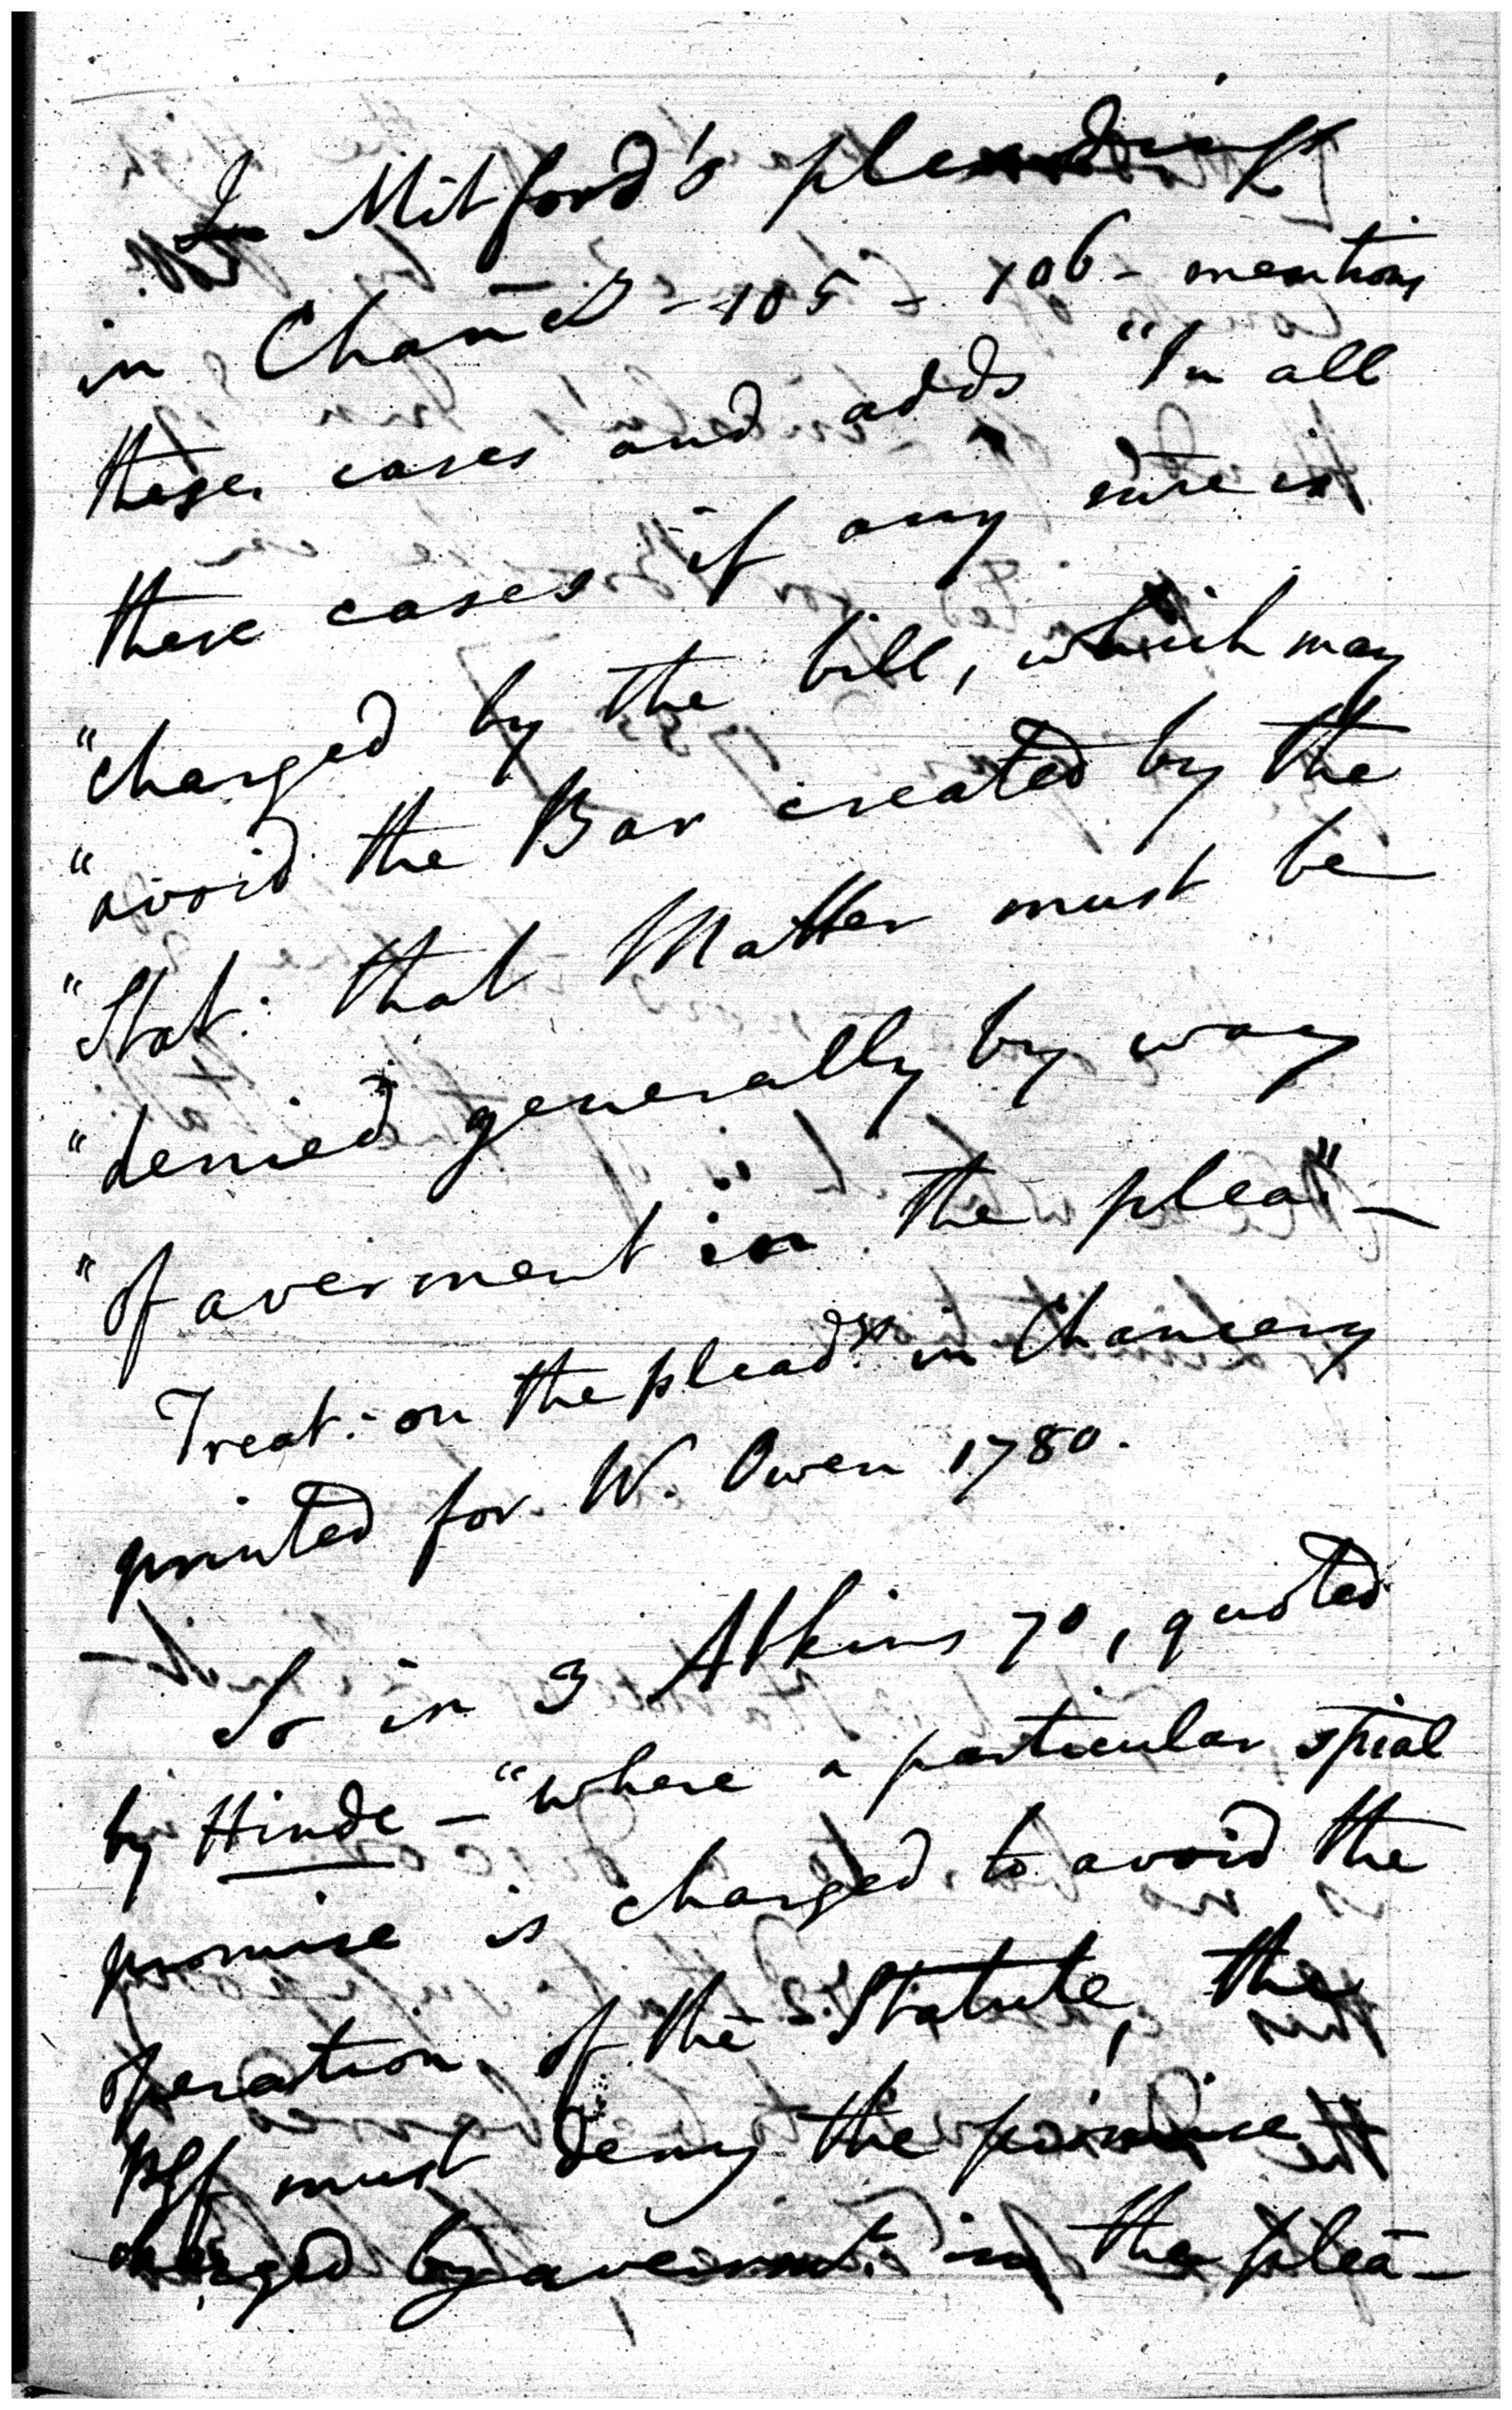 In Mitford's pleadings
in Chanc̃y - 105 - 106 - mentions
these cases and adds "In all
these cases if any matter is
"charged by the bill, which may
"avoid the Bar created by the
"Stat: that Matter must be
"denied generally by way
"of averment in the plea" —
Treat: on the pleadgs in Chancery
printed for W. Owen 1780.
So in 3 Atkins 70, quoted
by Hinde — "where a particular spial
promise is charged to avoid the
operation of the Statute, the
must deny the promise
charged by avermt. in the plea —